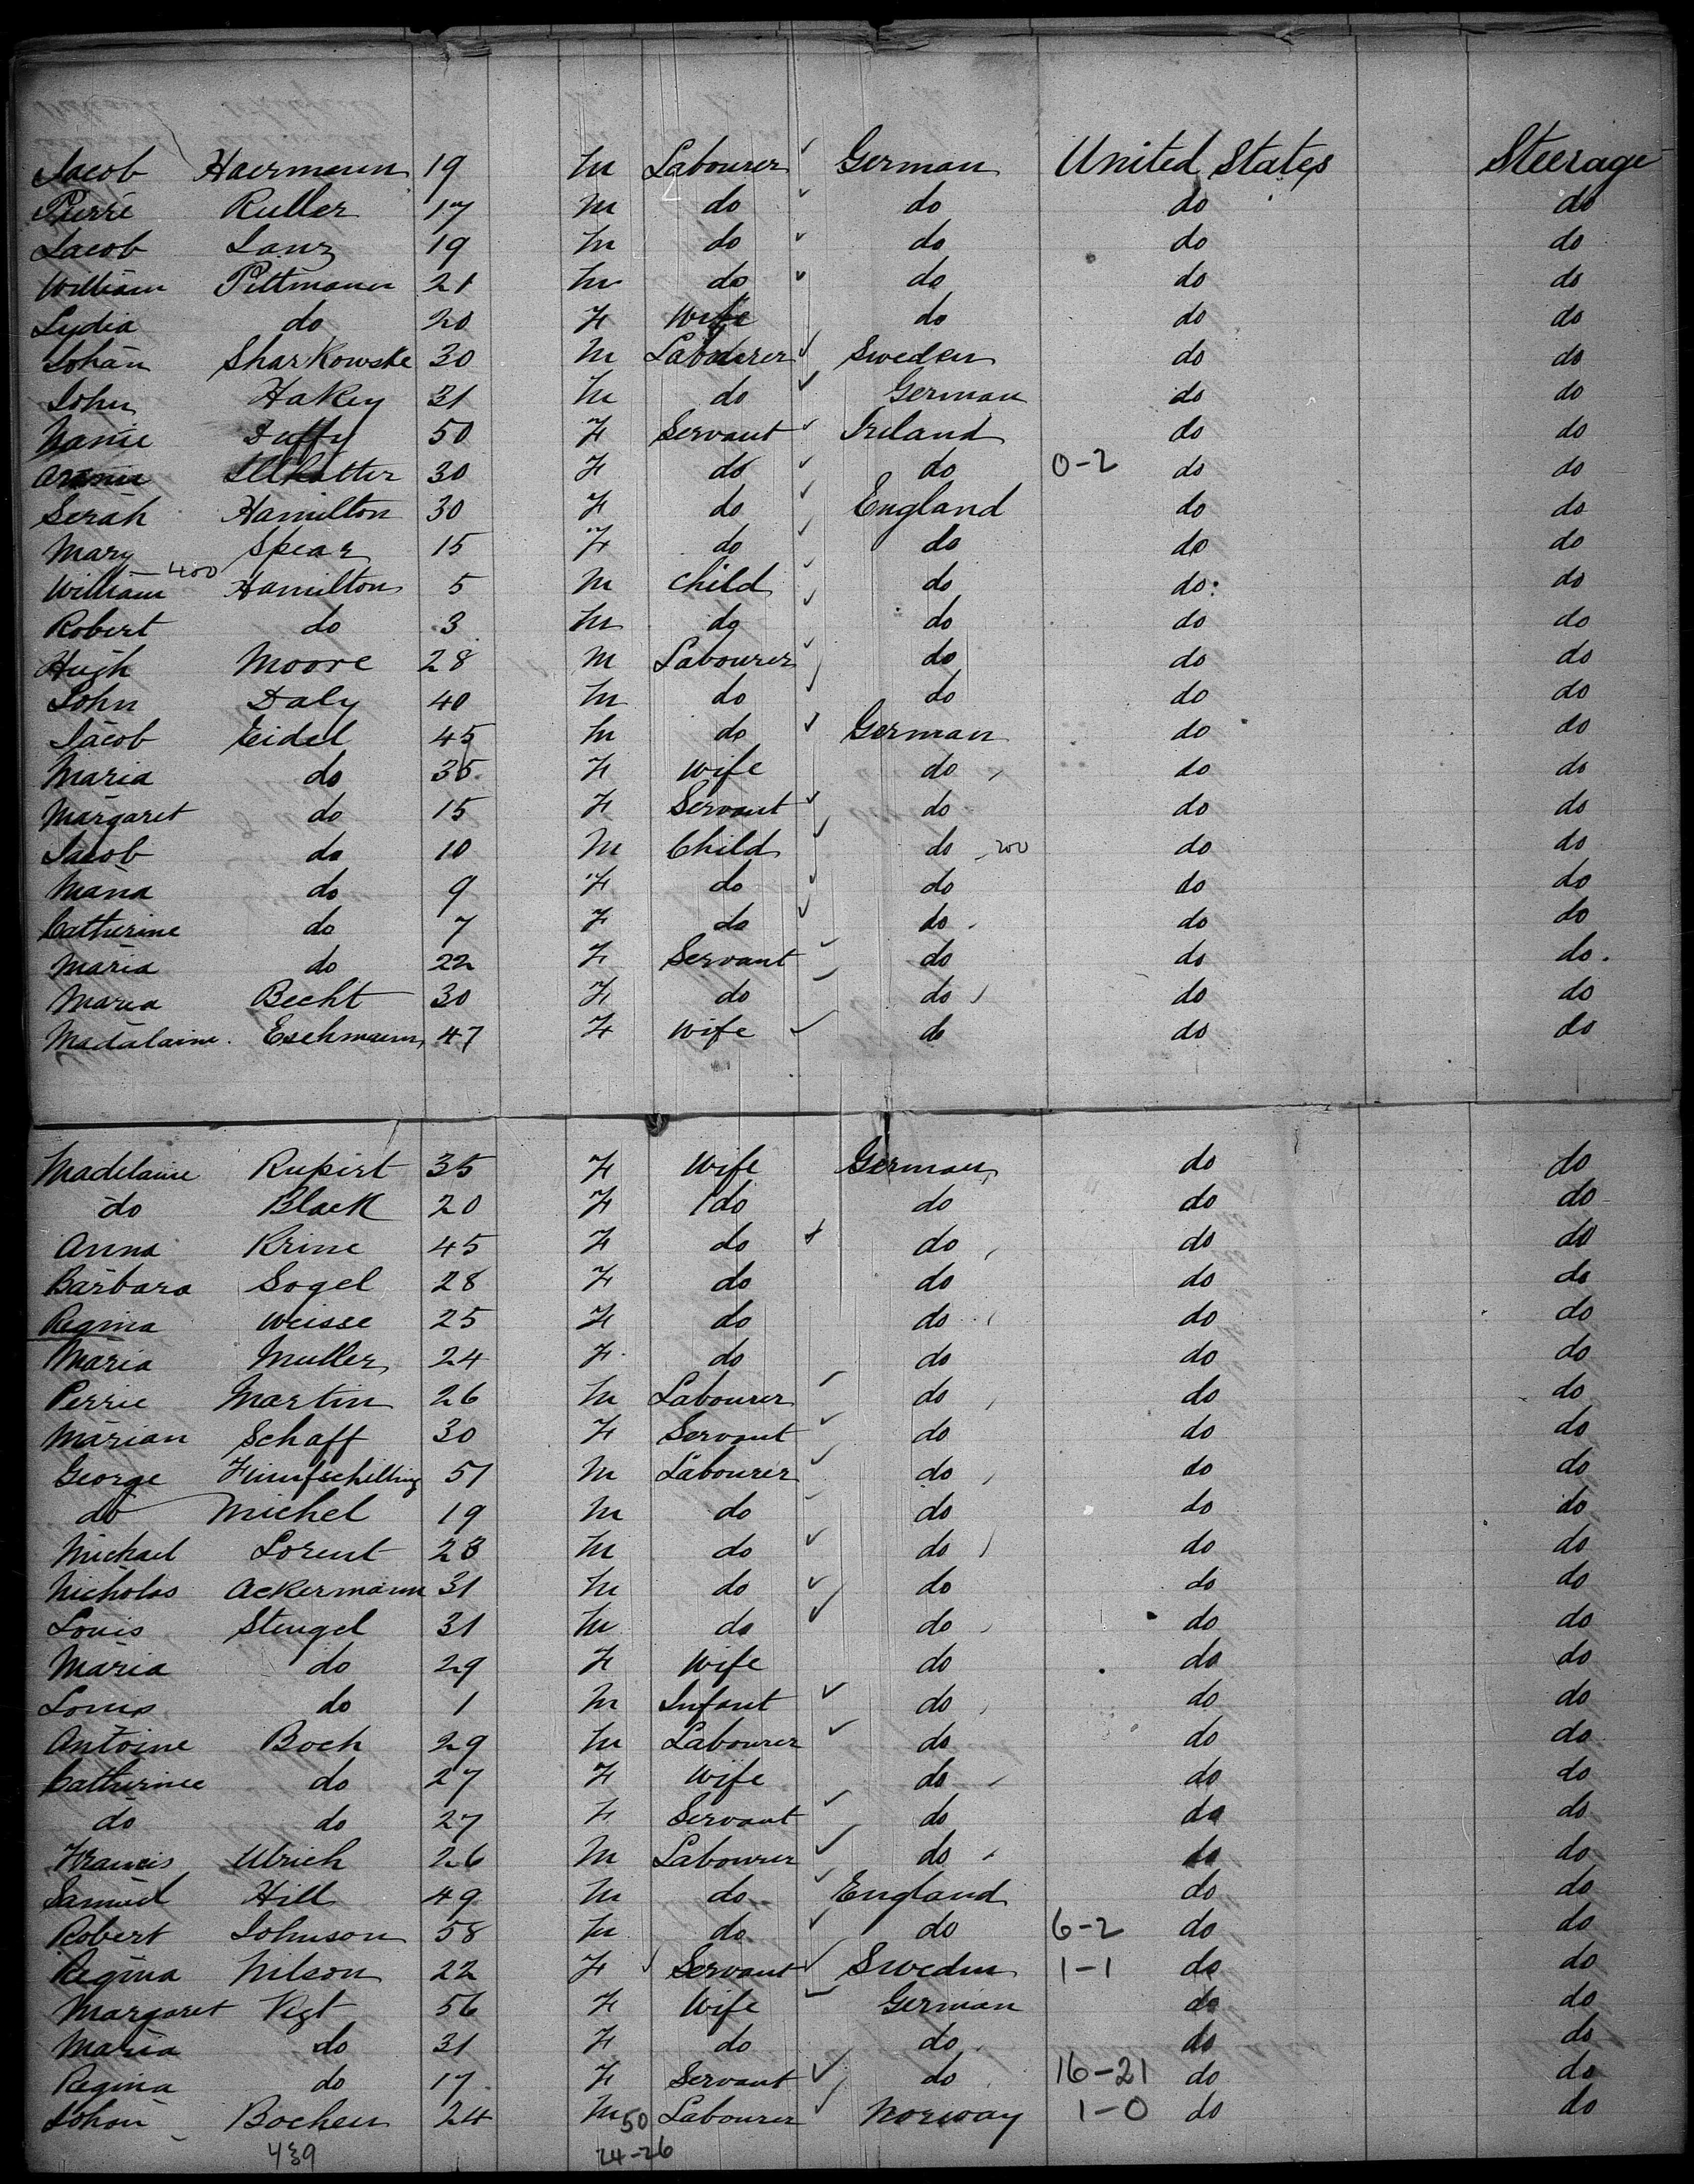 Jacob Haermann 19 M Labourer German United States Steerage
Pierre Ruller 17 M do do do do
Jacob Lanz 19 M do do do do
William Pittmann 21 M do do do do
Lydia do 20 F Wife do do do
Johan Sharkowske 30 M Labourer Sweden do do
John Hakey 31 M do German do do
Nanie Duffy 50 F Servant Ireland do do
30 F do do 0-2 do do
Serah Hamilton 30 F do England do do
Mary Spear 15 F do do do do
William 400 Hamilton 5 M Child do do do
Robert do 3 M do do do do
Hugh Moore 28 M Labourer do do do
John Daly 40 M do do do do
Jacob Eidel 45 M do German do do
Maria do 35 F Wife do do do
Margaret do 15 F Servant do do do
Jacob do 10 M Child do 200 do do
Maria do 9 F do do do do
Catherine do 7 F do do do do
Maria do 22 F Servant do do do
Maria Becht 30 F do do do do
Madalaine Eschmann 47 F Wife do do do
Madelaine Rupirt 35 F Wife German do do
do Black 20 F do do do do
Anna Krine 45 F do do do do
Barbara Sogel 28 F do do do do
Regina Weisse 25 F do do do do
Maria Muller 24 F do do do do
Perrie Martin 26 M Labourer do do do
Marian Schaff 30 F Servant do do do
George Fiunfschilling 51 M Labourer do do do
do Michel 19 M do do do do
Michael Lorent 23 M do do do do
Nicholas Ackermann 31 M do do do do
Louis Stengel 31 M do do do do
Maria do 29 F Wife do do do
Louis do 1 M Infant do do do
Antoine Boch 29 M Labourer do do do
Catherine do 27 F Wife do do do
do do 27 F Servant do do do
Francis Ulrich 26 M Labourer do do do
Samuel Hill 49 M do England do do
Robert Johnson 58 M do do 6-2 do do
Regina Nilson 22 F Servant Sweden 1-1 do do
Margaret Vigt 56 F Wife German do do
Maria do 31 F do do do do
Regina do 17 F Servant do 16-21 do do
Johan Bochen 24 M 50 Labourer Norway 1-0 do do
439 24-26